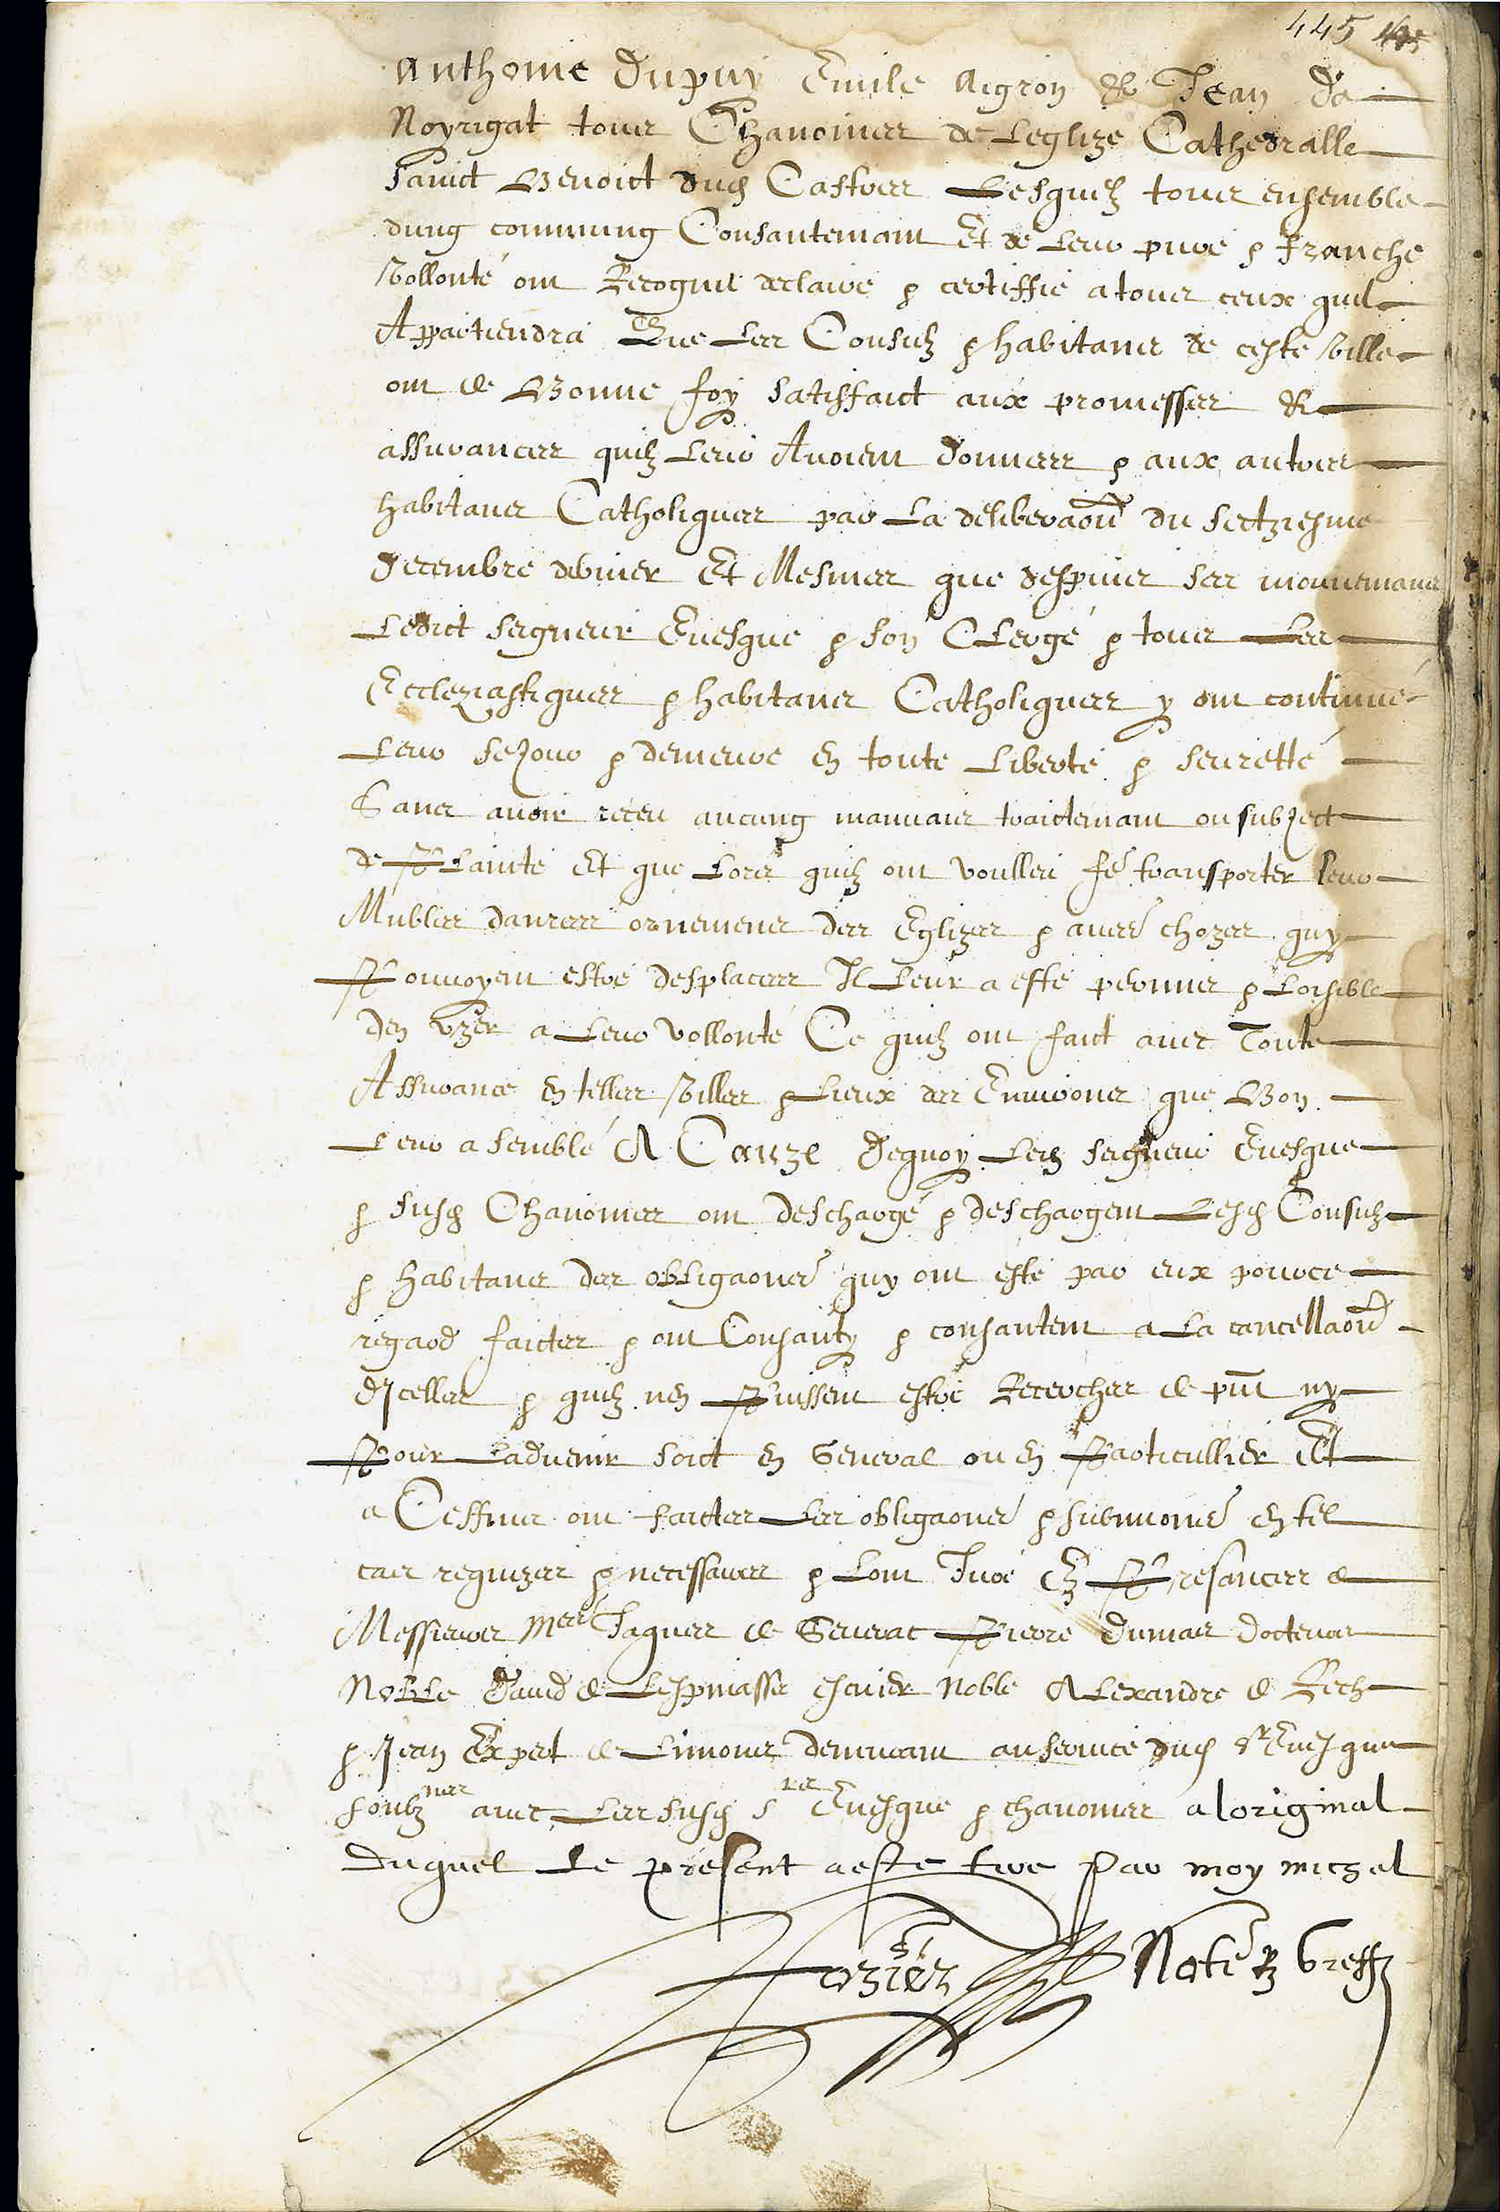 445
Anthoine Dupuy Emile Aigron & Jean Da
Noyrigat tous Chanoines de Leglize Cathedralle
sainct Benoict dud Castres Lesquelz tous ensemble
dung commung Consantemant Et de Leur pure & franche
Vollonté ont Recogneu declairé & certiffié a tous ceux quil
Appartiendra Que Les Consulz & habitans de ceste Ville
ont de Bonne foy satisfaict aux promesses &
assurances quilz Leur Avoient donnees & aux autres
habitans Catholiques par La deliberaon du setziesme
Decembre dernier Et Mesmes que despuis ses mouvemans
Ledict seigneur Evesque & son Clergé & tous Les
Eccleziastiques & habitans Catholiques y ont continué
Leur seJour & demeure en toute Liberté & seuretté
Sans avoir receu aucung mauvais traictemant ou subJect
de Plainte Et que Lors quilz ont voulleu fe transporter leur
Mubles danrees ornemens des Eglizes & aues chozes quy
Pouvoyent estre desplacees Il Leur a esté permis & Loisible
den Uzer a Leur vollonté Ce quilz ont faict avec Toute
Assurance en telles Villes & Lieux des Environs que Bon
Leur a semblé A Cauze dequoy Led seigneur Evesque
& susd Chanoines ont deschargé & deschargent Lesd Consulz
& habitans des obligaons quy ont esté par eux pource
regard faictes & ont Consanty & consantent a La cancellaon
dJcelles & quilz nen Puissent estre Recerches de pnt ny
Pour Ladvenir soict en General ou en Particullier Et
a Ces fins ont faictes Les obligaons & submions en tel
cas requizes & necessaires & Lont Juré En Presances de
Messieurs Mes Jaques de Generac Pierre Dumas docteurs
Noble David de Lespinasse escuier Noble Alexandre de Rech
& Jean Expert de Limous demeurant au service dud sr Evesque
soubznes avec Les susd srs Evesque & chanoines a loriginal
Duquel Le present a este tire Par moy Michel
Noté & Greff